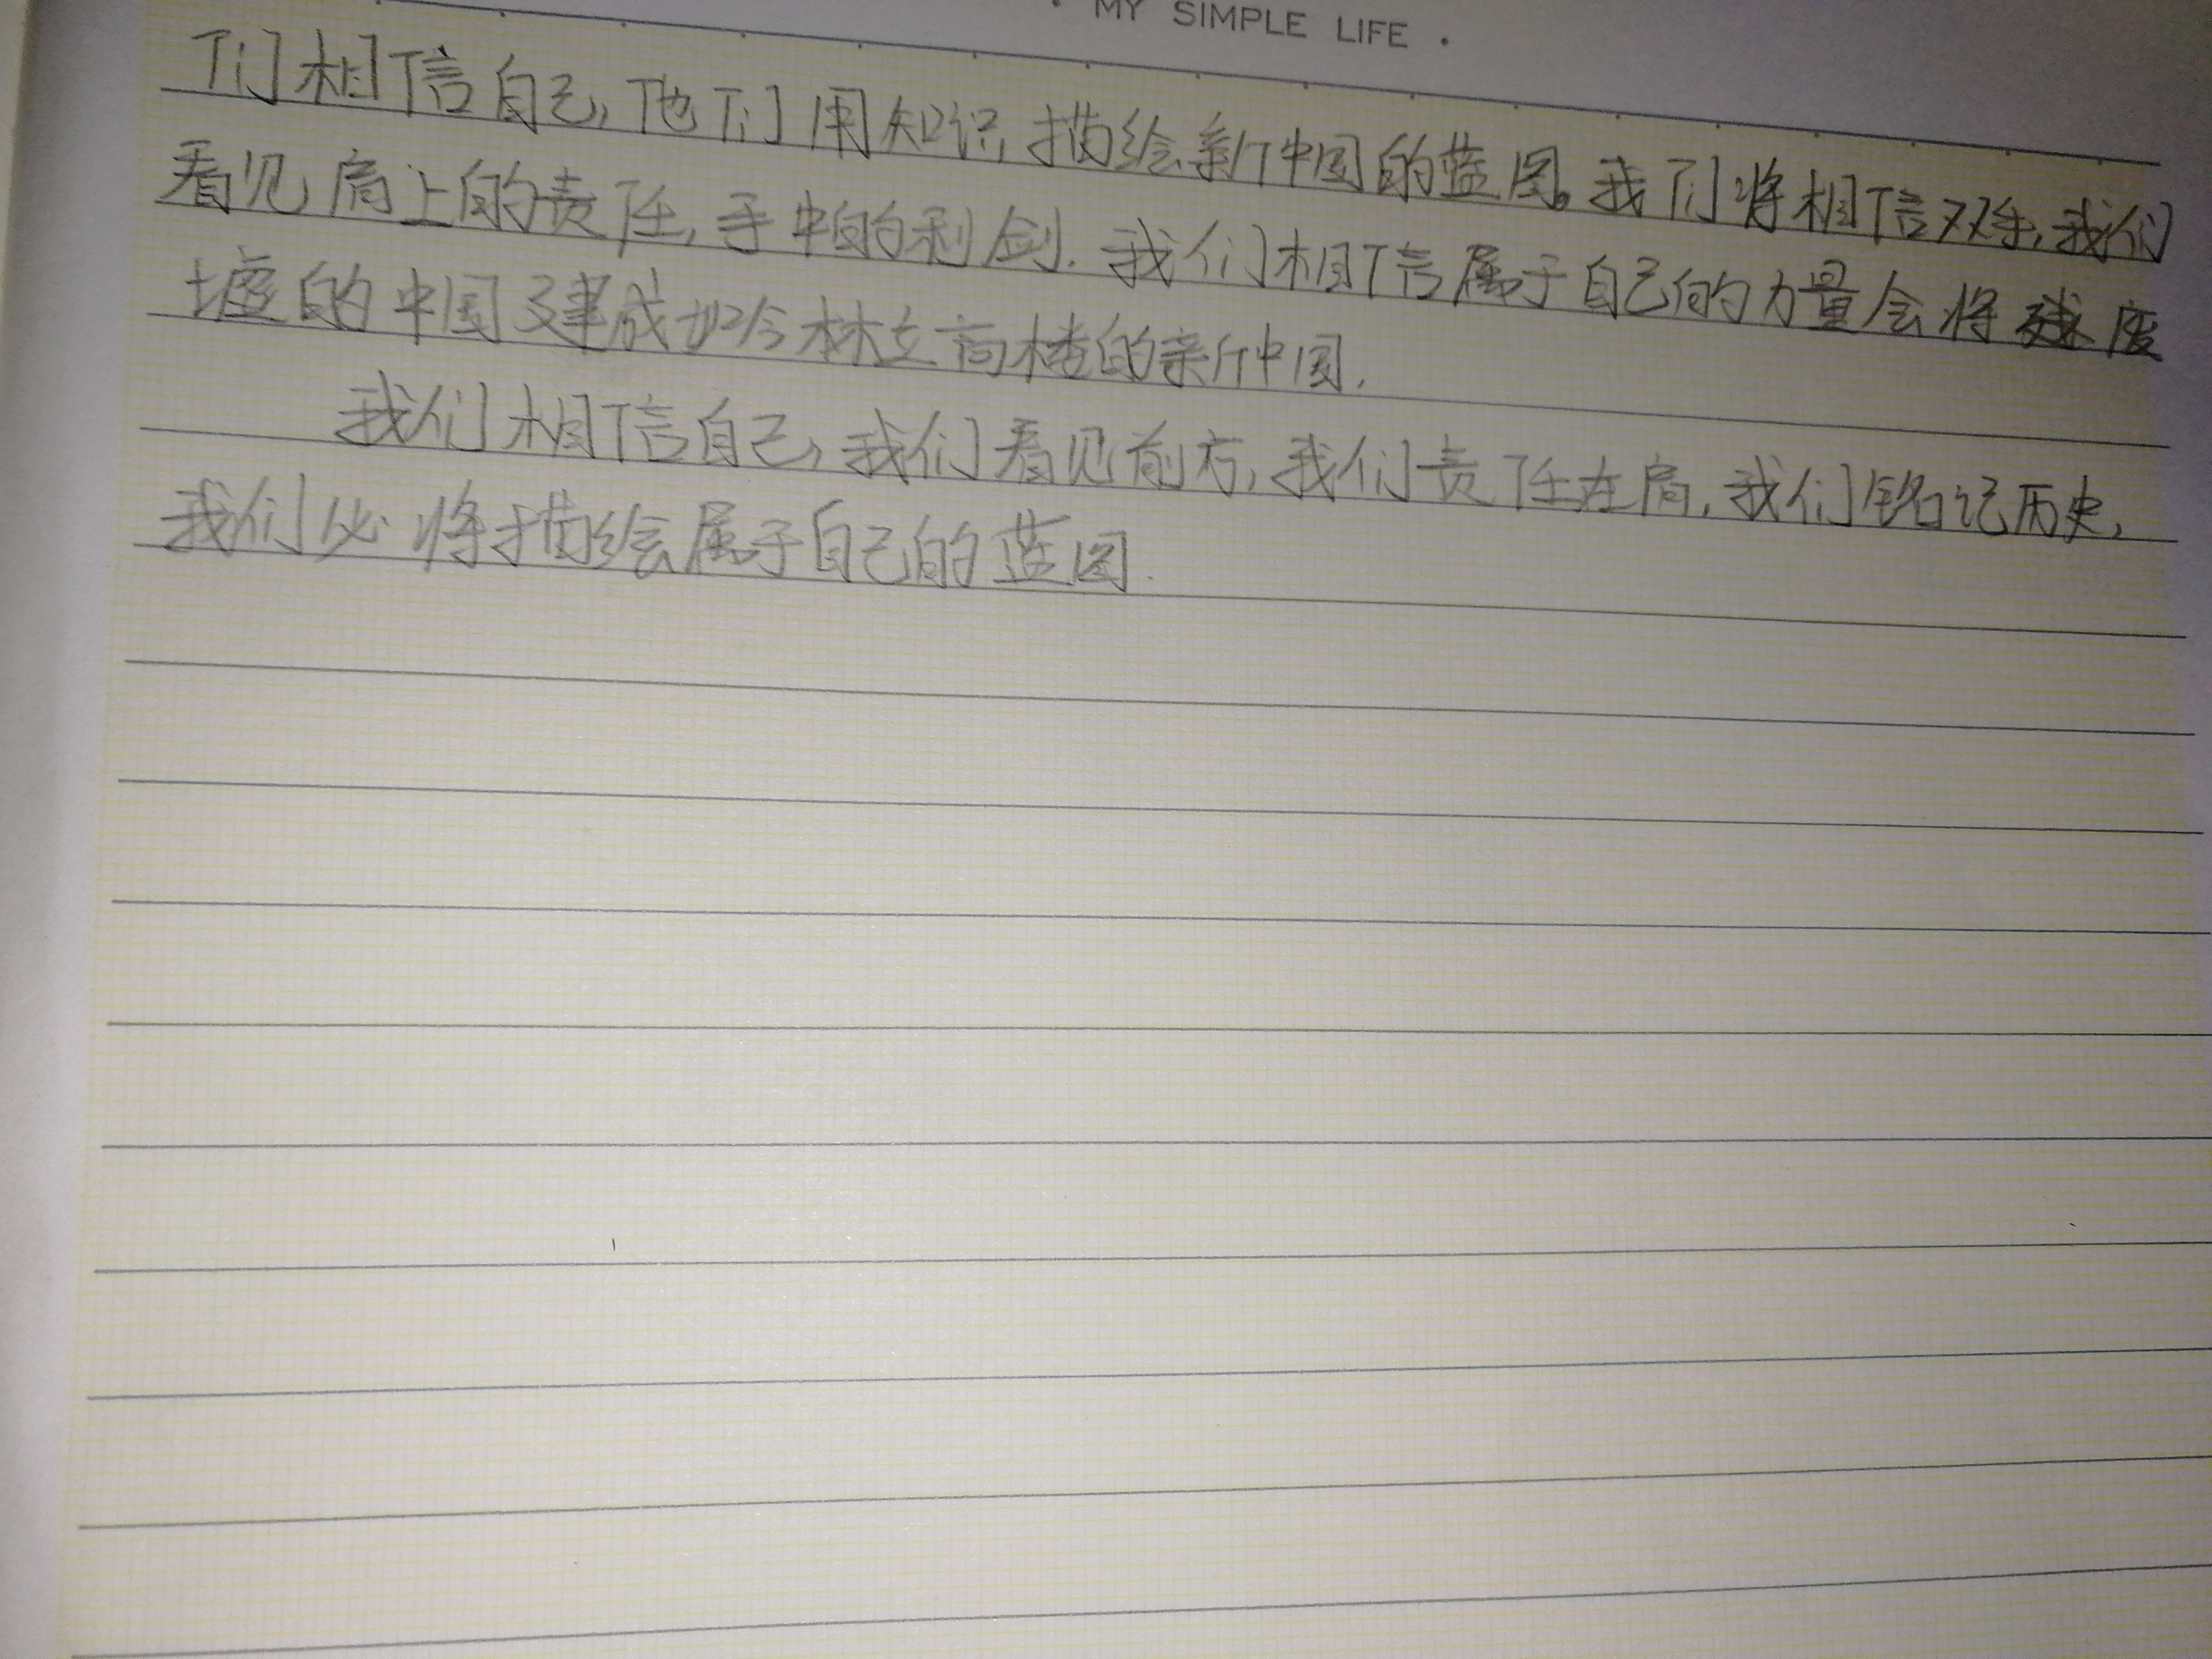 · MY SIMPLE LIFE ·
们相信自己,他们用知识描绘新中国的蓝图。我们将相信双手,我们
看见肩上的责任,手中的利剑.我们相信属于自己的力量会将残废
墟的中国建成如今林立高楼的新中国.
我们相信自己,我们看见前方,我们责任在肩,我们铭记历史,
我们必将描绘属于自己的蓝图.